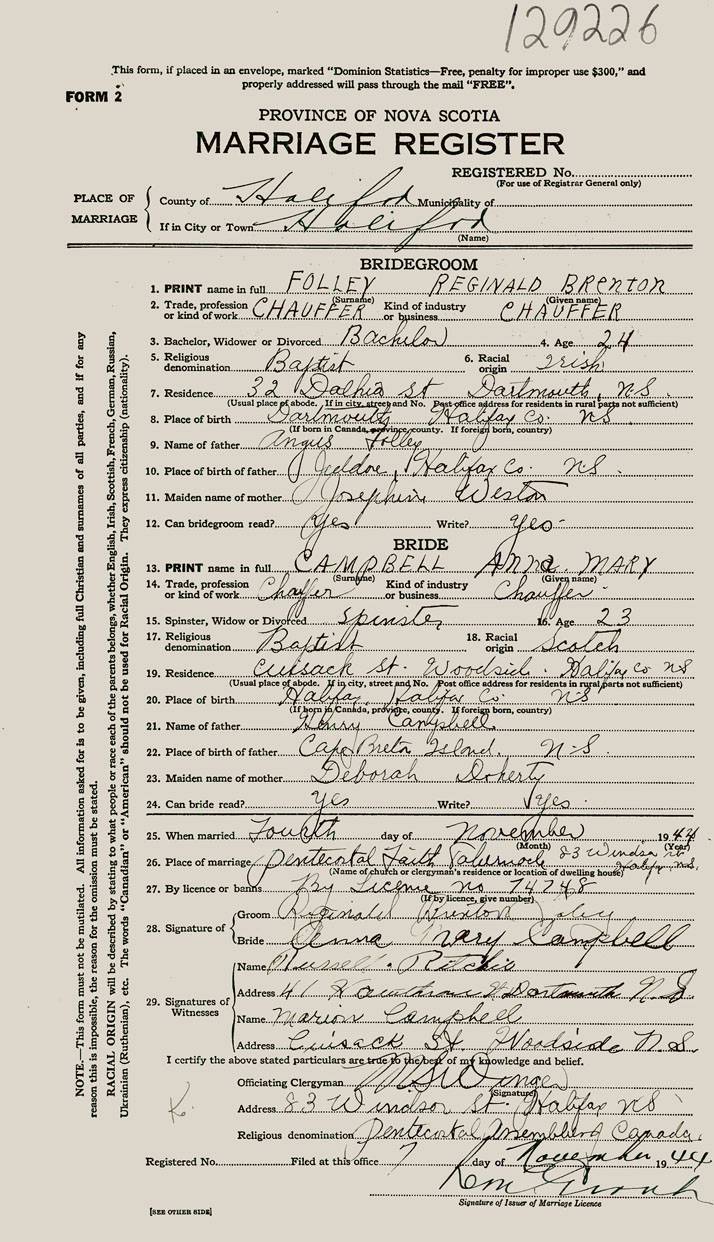 129226
This form, if placed in an envelope, marked "Dominion Statistics—Free, penalty for improper use $300," and
properly addressed will pass through the mail "FREE".
FORM 2
PROVINCE OF NOVA SCOTIA
MARRIAGE REGISTER
REGISTERED No.
(For use of Registrar General only)
PLACE OF MARRIAGE
County of Halifax Municipality of
If in City or Town Halifax
(Name)
BRIDEGROOM
1. PRINT name in full FOLLEY REGINALD BRENTON
(Surname) (Given name)
2. Trade, profession or kind of work CHAUFFER Kind of industry or business CHAUFFER
3. Bachelor, Widower or Divorced Bachelor 4. Age 24
5. Religious denomination Baptist 6. Racial origin Irish
7. Residence 32 Dalhia St Dartmouth, N.S.
(Usual place of abode. If in city, street and No. Post office address for residents in rural parts not sufficient)
8. Place of birth Dartmouth Halifax Co. N.S.
(If born in Canada, province, county. If foreign born, country)
9. Name of father Angus Folley
10. Place of birth of father Jeddore, Halifax Co. N.S.
11. Maiden name of mother Josephine Weston
12. Can bridegroom read? Yes Write? Yes
BRIDE
13. PRINT name in full CAMPBELL ANNA MARY
(Surname) (Given name)
14. Trade, profession or kind of work Chauffer Kind of industry or business Chauffer
15. Spinster, Widow or Divorced Spinster 16. Age 23
17. Religious denomination Baptist 18. Racial origin Scotch
19. Residence Cuisack St. Woodside. Halifax Co N.S
(Usual place of abode. If in city, street and No. Post office address for residents in rural parts not sufficient)
20. Place of birth Halifax, Halifax Co. N.S
(If born in Canada, province, county. If foreign born, country)
21. Name of father Henry Campbell
22. Place of birth of father Cape Breton Island, N.S.
23. Maiden name of mother Deborah Doherty
24. Can bride read? Yes Write? Yes
25. When married Fourth day of November 1944
(Month) (Year)
26. Place of marriage Pentecostal Faith Tabernacle 83 Windsor St Halifax, N.S.
(Name of church or clergyman's residence or location of dwelling house)
27. By licence or banns By License no 74748
(If by licence, give number)
28. Signature of
Groom Reginald Brenton Foley
Bride Anna Mary Campbell
29. Signatures of Witnesses
Name Russell Ritchie
Address 41 Hawthorne St Dartmouth N.S.
Name Marion Campbell
Address Cuisack St. Woodside N.S.
I certify the above stated particulars are true to the best of my knowledge and belief.
Officiating Clergyman
(Signature)
Address 83 Windsor St. Halifax N.S
Religious denomination Pentecostal Assemblies of Canada.
K.
Registered No. Filed at this office 7 day of November 1944
Signature of Issuer of Marriage Licence
[SEE OTHER SIDE]
NOTE.—This form must not be mutilated. All information asked for is to be given, including full Christian and surnames of all parties, and if for any
reason this is impossible, the reason for the omission must be stated.
RACIAL ORIGIN will be described by stating to what people or race each of the parents belongs, whether English, Irish, Scottish, French, German, Russian,
Ukrainian (Ruthenian), etc. The words "Canadian" or "American" should not be used for Racial Origin. They express citizenship (nationality).